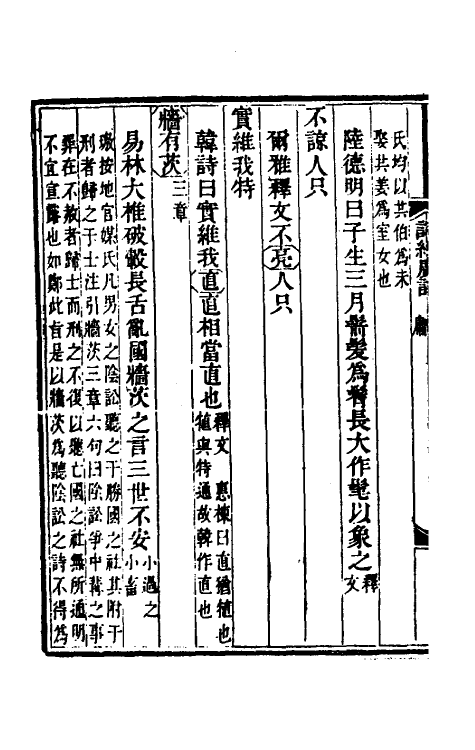 氏均以其伯爲未
娶共姜爲室女也
陸德明曰子生三月翦髮爲鬌長大作髦以象之釋文
不諒人只
爾雅釋文不亮人只
實維我特
韓詩曰實維我直直相當直也釋文 惠棟曰直猶犆也
犆與特通故韓作直也
牆有茨三章
易林大椎破轂長舌亂國牆茨之言三世不安小過之
小畜
璈按地官媒氏凡男女之陰訟聽之于勝國之社其附于
刑者歸之于士注引牆茨三章六句曰陰訟爭中冓之事
罪在不赦者歸士而刑之不復以聽亡國之社無所通明
不宜宣露也如鄭此言是以牆茨爲聽陰訟之詩不得爲